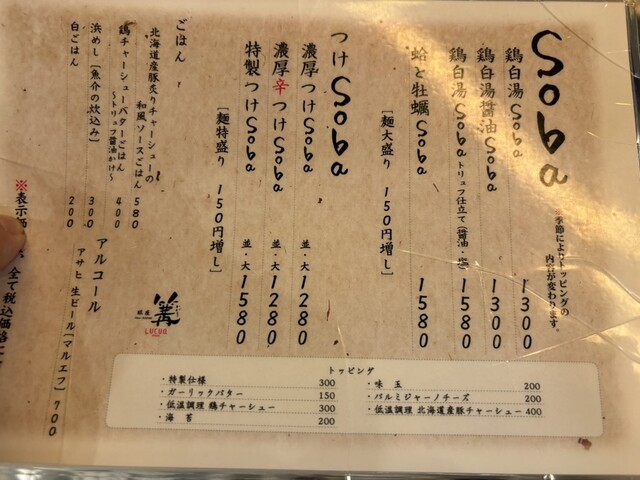 Soba
※季節によりトッピングの
内容が変わります。
鶏白湯Soba 1300
鶏白湯醤油Soba 1300
鶏白湯Sobaトリュフ仕立て(醤油・塩) 1580
蛤と牡蠣Soba 1580
[麺大盛り 150円増し]
つけSoba
濃厚つけSoba 並・大 1280
濃厚辛つけSoba 並・大 1280
特製つけSoba 並・大 1580
[麺特盛り 150円増し]
ごはん
北海道産豚炙りチャーシューの
和風ソースごはん 580
鶏チャーシューバターごはん 400
～トリュフ醤油かけ～
浜めし[魚介の炊込み] 300
白ごはん 200
アルコール
アサヒ 生ビール[マルエフ] 700
※表示価
全て税込価格
銀座
篝
LUCUA
トッピング
・特製仕様 300
・ガーリックバター 150
・低温調理 鶏チャーシュー 300
・海苔 200
・味玉 200
・パルミジャーノチーズ 200
・低温調理 北海道産豚チャーシュー 400